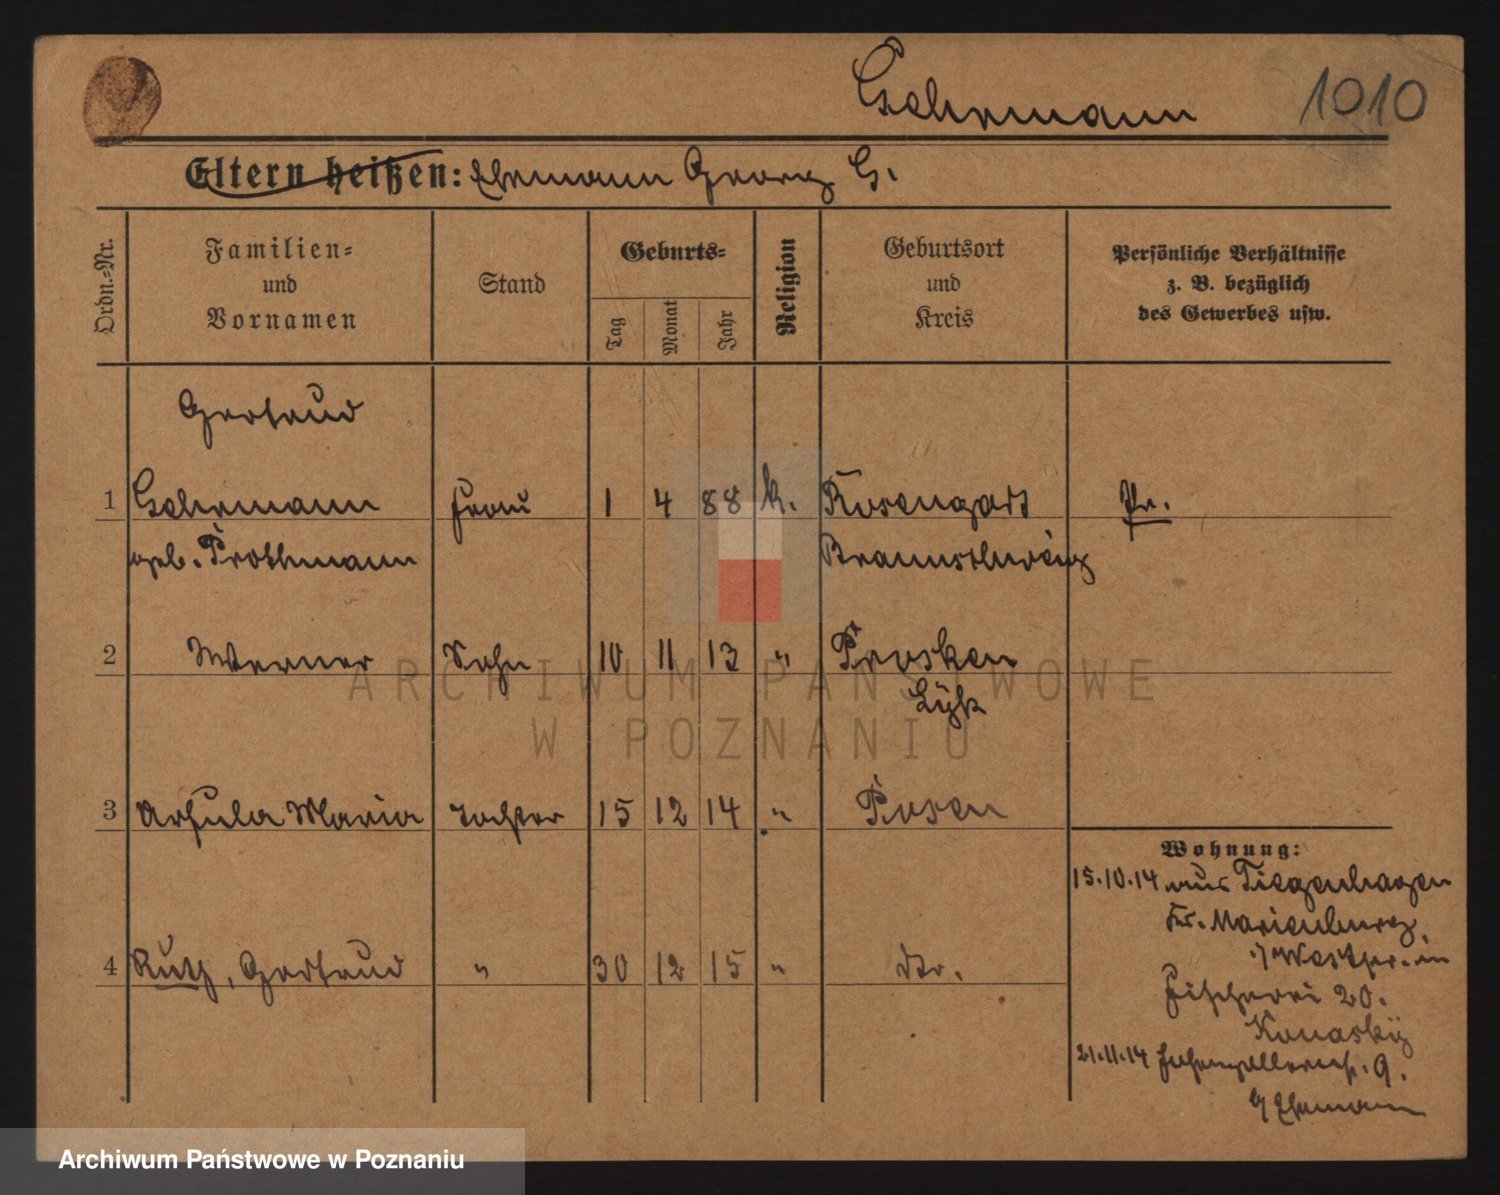 Gehrmann
1010
Eltern heißen: Ehemann Georg G.
Ordn.=Nr.
Familien=
und
Vornamen
Stand
Geburts=
Tag
Monat
Jahr
Religion
Geburtsort
und
Kreis
Persönliche Verhältnisse
z. B. bezüglich
des Gewerbes usw.
Gertrud
1 Gehrmann Frau 1 4 88 k. Rosengart Pr.
geb. Prothmann Braunschweig
2 Werner Sohn 10 11 13 " Prosken
Lyk
3 Ursula Maria Tochter 15 12 14 " Posen
Wohnung:
15.10.14 aus Tiegenhagen
Kr. Marienburg
i/Westpr. in
4 Ruth, Gertrud " 30 12 15 " dto.
Fischerei 20.
Konasky
21.11.14 Hohenzollernst. 9.
b/ Ehemann
ARCHIWUM PAŃSTWOWE
W POZNANIU
Archiwum Państwowe w Poznaniu